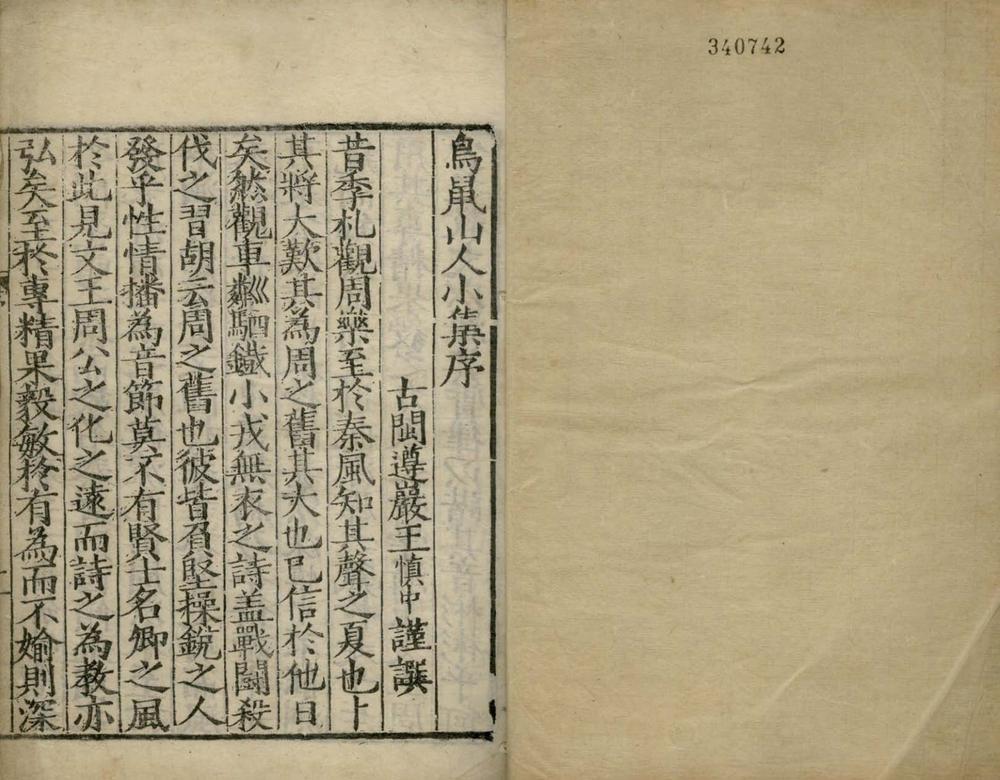 340742
鳥鼠山人小集序
古閩遵巖王慎中謹譔
昔季札觀周樂至於秦風知其聲之夏也卜
其將大歎其為周之舊其大也已信於他日
矣然觀車粼駟鐵小戎無衣之詩盖戰鬭殺
伐之習胡云周之舊也彼皆負堅操銳之人
發乎性情播為音節莫不有賢士名卿之風
於此見文王周公之化之遠而詩之為教亦
弘矣至於專精果毅敏於有為而不媮則深